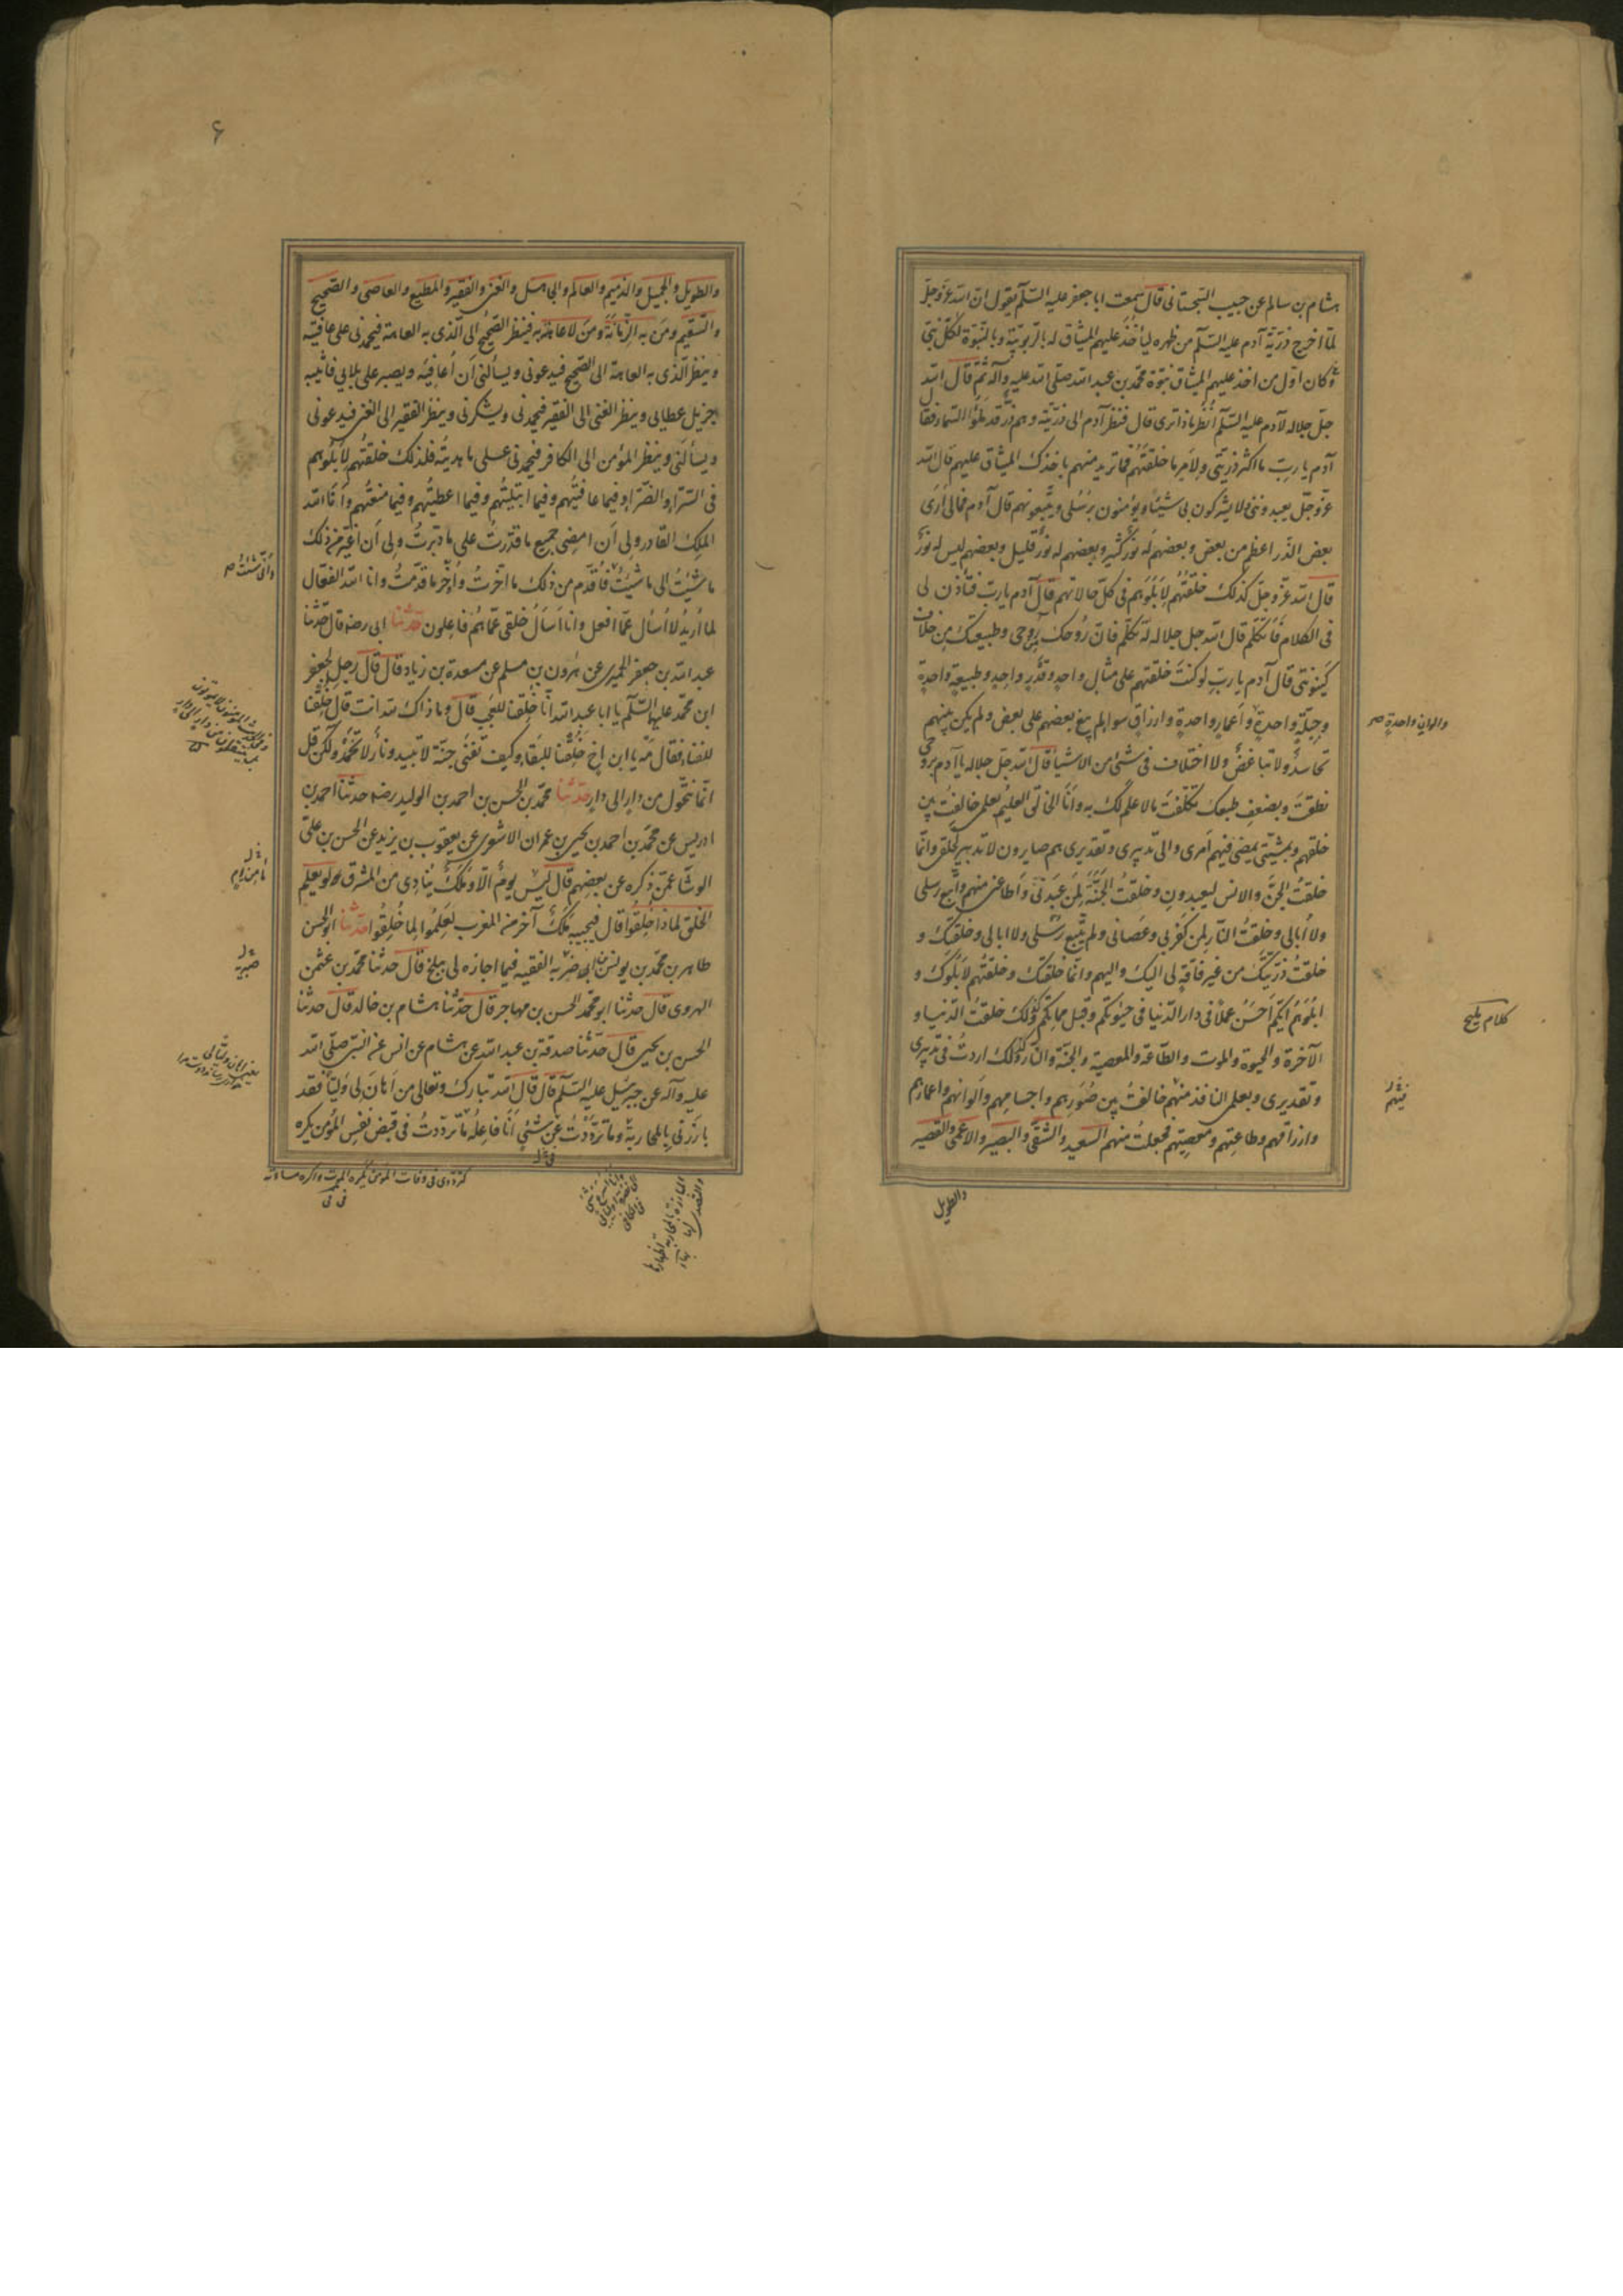 هشام بن سالم عن حبيب السجستانى قال سمعت ابا جعفر عليه السلام يقول ان الله عز و جل
لما اخرج ذرية آدم عليه السلام من ظهره ليأخذ عليهم الميثاق له بالربوبية و بالنبوة لكل نبى
و كان اول من اخذ عليهم الميثاق نبوة محمد بن عبد الله صلى الله عليه و آله ثم قال الله
جل جلاله لآدم عليه السلام أنظر ماذا ترى قال فنظر آدم الى ذريته و هم ذر قد ملؤا السماء فقال
آدم يا رب ما اكثر ذريتى و لامر ما خلقتهم فما تريد منهم باخذك الميثاق عليهم قال الله
عز و جل يعبدوننى و لا يشركون بى شيئا و يؤمنون برسلى و يتبعونهم قال آدم فمالى أرى
بعض الذر اعظم من بعض و بعضهم له نور كثير و بعضهم له نور قليل و بعضهم ليس له نور
قال الله عز و جل كذلك خلقتهم لابلوهم فى كل حالاتهم قال آدم يا رب فتأذن لى
فى الكلام فاتكلم قال الله جل جلاله له تكلم فان روحك من روحى و طبيعتك من خلاف
كينونتى قال آدم يا رب لو كنت خلقتهم على مثال واحد و قدر واحد و طبيعة واحدة
و جبلة واحدة و أعمار واحدة و ارزاق سواء لم يبغ بعضهم على بعض و لم يكن بينهم
تحاسد و لا تباغض و لا اختلاف فى شئ من الاشياء قال الله جل جلاله يا آدم بروحى
نطقت و بضعف طبعك تكلفت ما لا علم لك به و أنا الخالق العليم بعلمى خالفت بين
خلقهم و بمشيتى يمضى فيهم أمرى و الى تدبيرى و تقديرى هم صايرون لا تبديل لخلقى و انما
خلقت الجن و الانس ليعبدون و خلقت الجنة لمن عبدنى و أطاعنى منهم و اتبع رسلى
و لا أبالى و خلقت النار لمن كفر بى و عصانى و لم يتبع رسلى و لا ابالى و خلقتك و
خلقت ذريتك من غير فاقة لى اليك و اليهم و انما خلقتك و خلقتهم لابلوك و
ابلوهم أيكم أحسن عملا فى دار الدنيا فى حيوتكم و قبل مماتكم و كذلك خلقت الدنيا و
الآخرة و الحيوة و الموت و الطاعة و المعصية و الجنة و النار و كذلك اردت فى تدبيرى
و تقديرى و بعلمى النافذ منهم خالفت بين صورهم و اجسامهم و ألوانهم و اعمارهم
و ارزاقهم و طاعتهم و معصيتهم فجعلت منهم السعيد و الشقى و البصير و الاعمى و القصير
والطويل
و الوان واحدة صح
كلام بليغ
فيهم
۶
و الطويل و الجميل و الذميم و العالم و الجاهل و الغنى و الفقير و المطيع و العاصى و الصحيح
و السقيم و من به الزمانة و من لا عاهة به فينظر الصحيح الى الذى به العاهة فيحمدنى على عافيته
و ينظر الذى به العاهة الى الصحيح فيدعونى و يسألنى أن أعافيه و يصبر على بلايى فاثيبه
جزيل عطايى و ينظر الغنى الى الفقير فيحمدنى و يشكرنى و ينظر الفقير الى الغنى فيدعونى
و يسألنى و ينظر المؤمن الى الكافر فيحمدنى على ما هديته فلذلك خلقتهم لابلوهم
فى السراء و الضراء و فيما عافيتهم و فيما ابتليتهم و فيما اعطيتهم و فيما منعتهم و أنا الله
الملك القادر و لى أن امضى جميع ما قدرت على ما دبرت و لى أن أغير من ذلك
ما شئت الى ما شئت فأقدم من ذلك ما اخرت و أؤخر ما قدمت و انا الله الفعال
لما أريد لا أسأل عما افعل و انا أسأل خلقى عما هم فاعلون حدثنا ابى رضه قال حدثنا
عبد الله بن جعفر الحميرى عن هرون بن مسلم عن مسعدة بن زياد قال قال رجل لجعفر
ابن محمد عليهما السلام يا ابا عبد الله انا خلقنا للعجب قال و ما ذاك لله انت قال خلقنا
للفناء فقال مه يا ابن اخ خلقنا للبقاء و كيف تفنى جنة لا تبيد و نار لا تخمد و لكن قل
انما نتحول من دار الى دار حدثنا محمد بن الحسن بن احمد بن الوليد رضه حدثنا احمد بن
ادريس عن محمد بن احمد بن يحيى بن عمران الاشعرى عن يعقوب بن يزيد عن الحسن بن على
الوشا عمن ذكره عن بعضهم قال ليس يوم الا و ملك ينادى من المشرق لو يعلم
الخلق لماذا خلقوا قال فيجيبه ملك آخر من المغرب لعملوا لما خلقوا حدثنا ابو الحسن
طاهر بن محمد بن يونس بن ابى ضربه الفقيه فيما اجازه لى ببلخ قال حدثنا محمد بن عثمن
الهروى قال حدثنا ابو محمد الحسن بن مهاجر قال حدثنا هشام بن خالد قال حدثنا
الحسن بن يحيى قال حدثنا صدقة بن عبد الله عن هشام عن انس عن النبى صلى الله
عليه و آله عن جبرئيل عليه السلام قال قال الله تبارك و تعالى من أهان لى وليا فقد
بارزنى بالمحاربة و ما ترددت عن شئ أنا فاعله ما ترددت فى قبض نفس المؤمن يكره
و الى شئت صح
ما من يوم